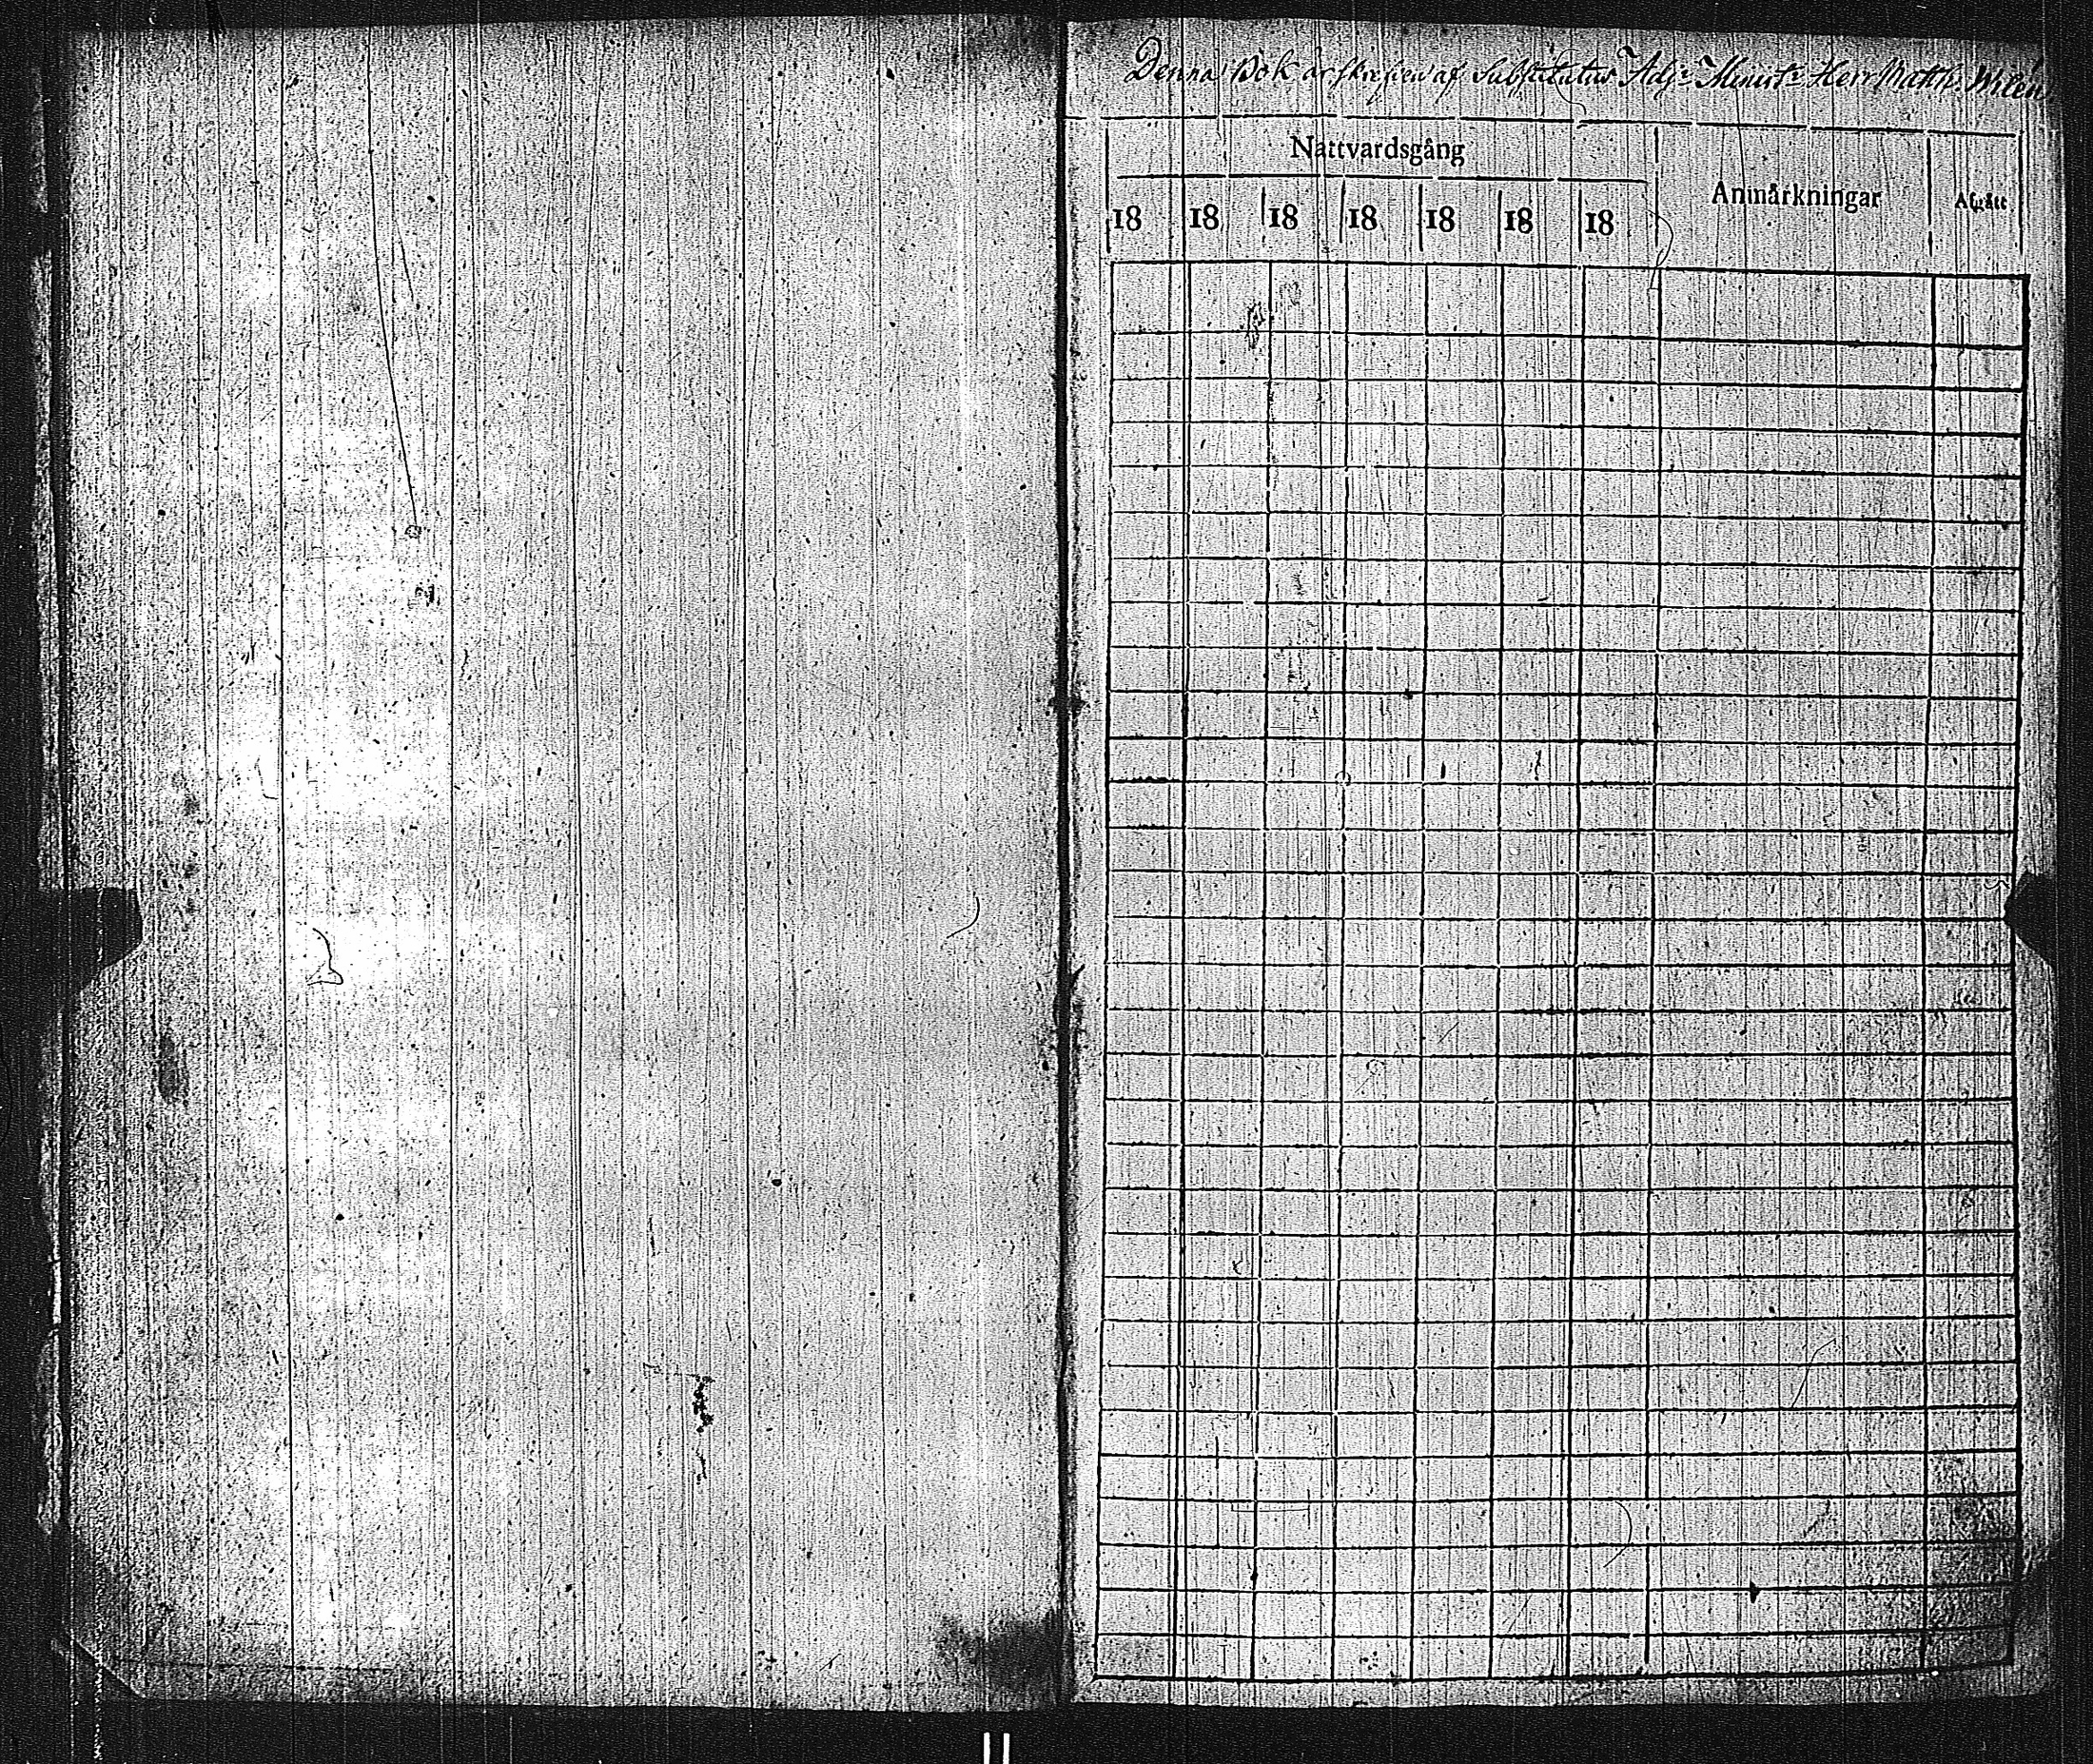 Denna Bok är skrefven af Substitutus Adj: Minist: Herr Matth. Wilén
Nattvardsgång
Anmärkningar
Afgått
18 18 18 18 18 18 18